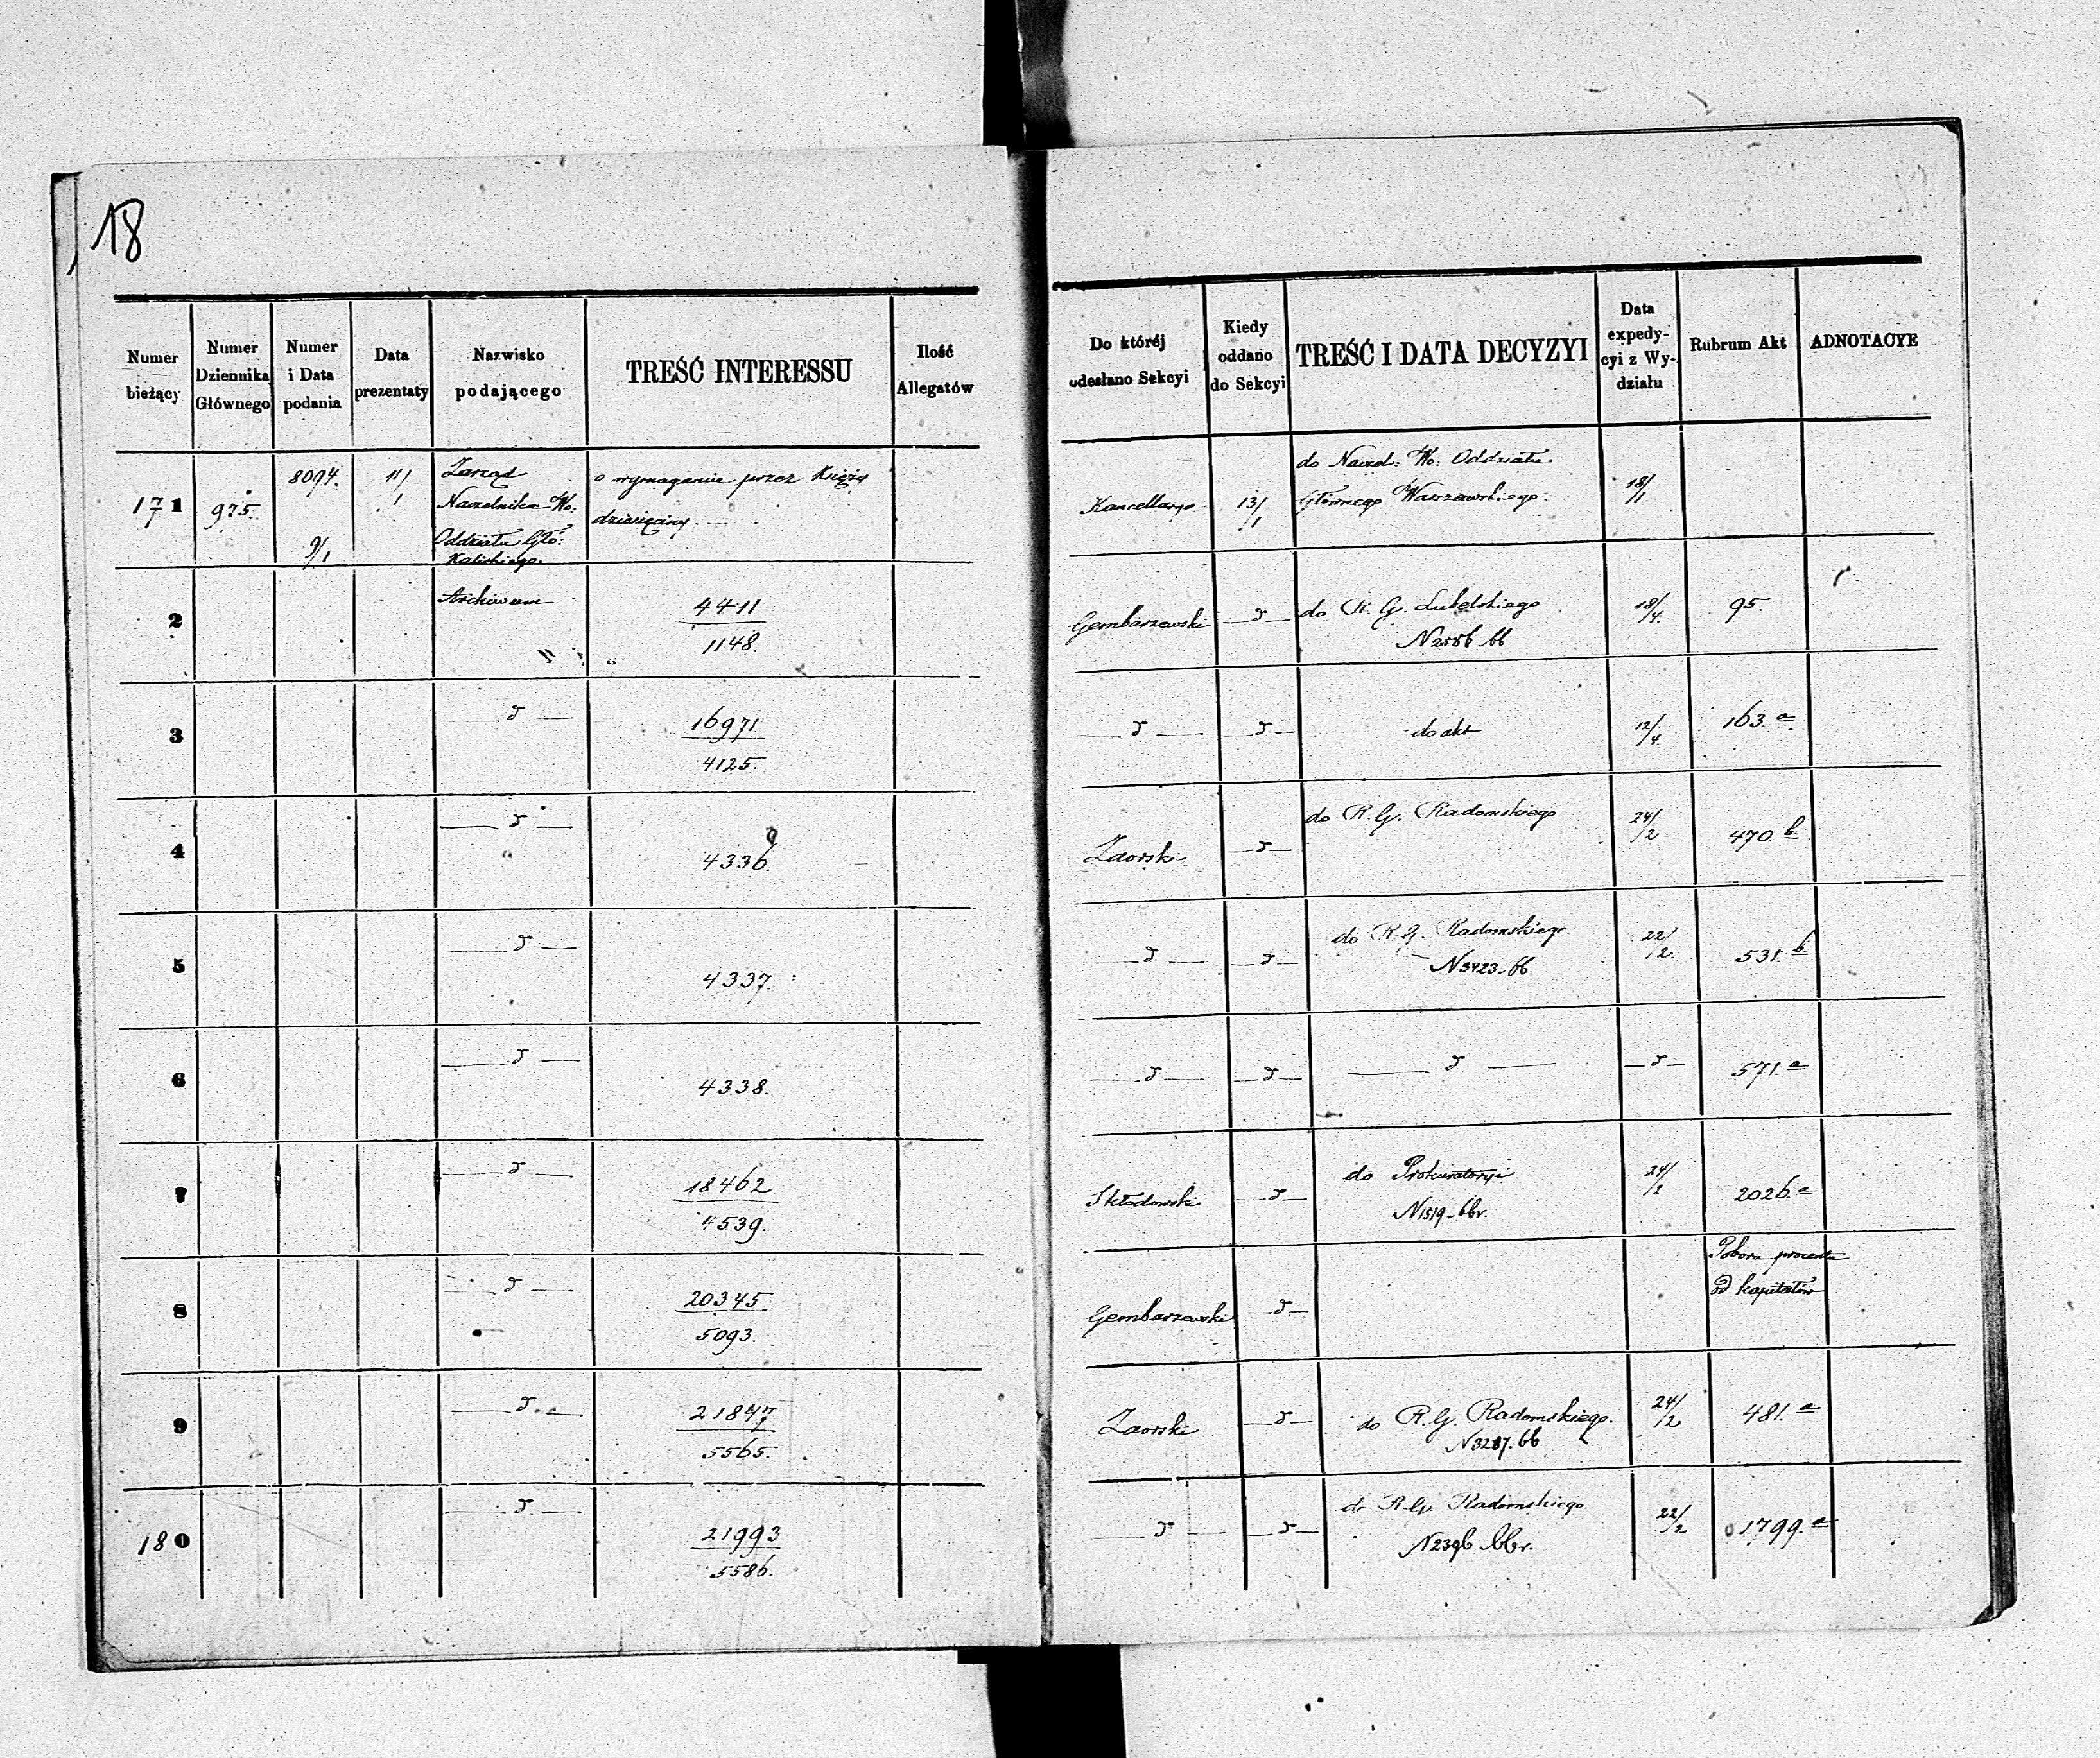 18
Numer bieżący
Numer Dziennika Głównego
Numer i Data podania
Data prezentaty
Nazwisko podającego
TREŚĆ INTERESSU
Ilość Allegatów
Do której odesłano Sekcyi
Kiedy oddano do Sekcyi
TREŚĆ I DATA DECYZYI
Data expedycyi z Wydziału
Rubrum Akt
ADNOTACYE
171
975.
8094.
9/1
11/1
Zarząd
Naczelnika Wo:
Oddziału Głó:
Kaliskiego.
o wymaganie przez Księży
dziesięciny.
Kancellarya
13/1
do Naczel: Wo: Oddziału
Głównego Warszawskiego.
18/1
2
Archiwum
4411
1148.
Gembarzewski
— d —
do R. G. Lubelskiego
N 2586 bb
18/4.
95.
3
— d —
16971
4125.
— d —
— d —
do akt
12/4.
163. a
4
— d —
4336.
Zaorski
— d —
do R. G. Radomskiego
24/2
470. b.
5
— d —
4337.
— d —
— d —
do R. G. Radomskiego
N 3423 - bb
22/2.
531. b.
6
— d —
4338.
— d —
— d —
— d —
— d —
571. a
7
— d —
18462
4539.
Skłodowski
— d —
do Prokuratoryi
N 1519 - bbr.
24/2
2026. a
8
— d —
20345
5093.
Gembarzewski
— d —
Pobora procentu
od kapitałów
9
— d —
21847
5565.
Zaorski
— d —
do R. G. Radomskiego.
N 3287. bb
24/2
481. a
180
— d —
21993
5586.
— d —
— d —
do R. G. Radomskiego
N 2396 bbr.
22/2
1799. a